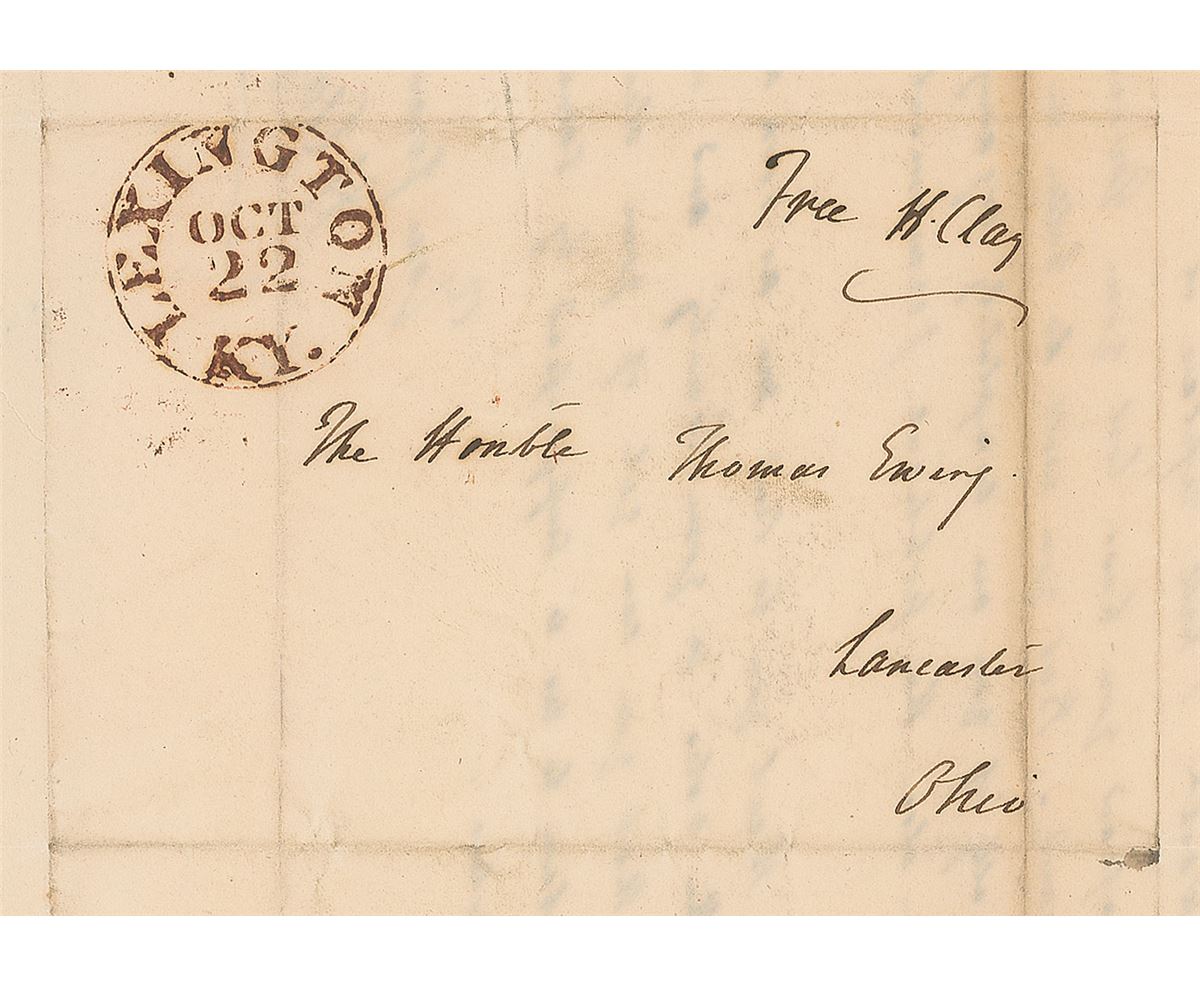 LEXINGTON KY.
OCT
22
Free H. Clay
The Honble Thomas Ewing.
Lancaster
Ohio